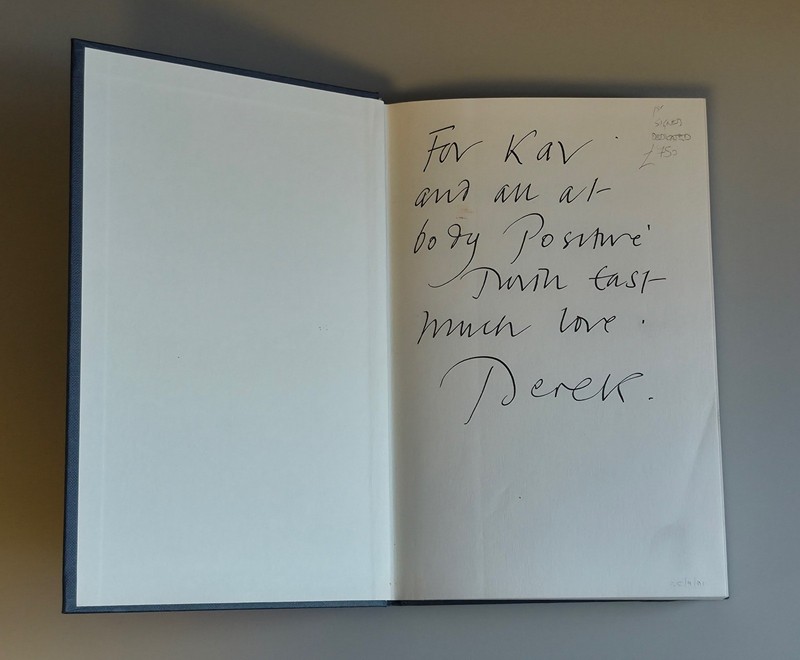 SIGNED
£750
For Kav
and all at
body Positive
North East
much love.
Derek.